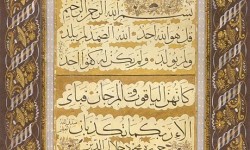 بسم الله الرحمن الرحيم
قل هو الله احد الله الصمد لم يلد
ولم يولد ولم يكن له كفوا احد
كانهن الياقوت والمرجان فباي
الاء ربكما تكذبان